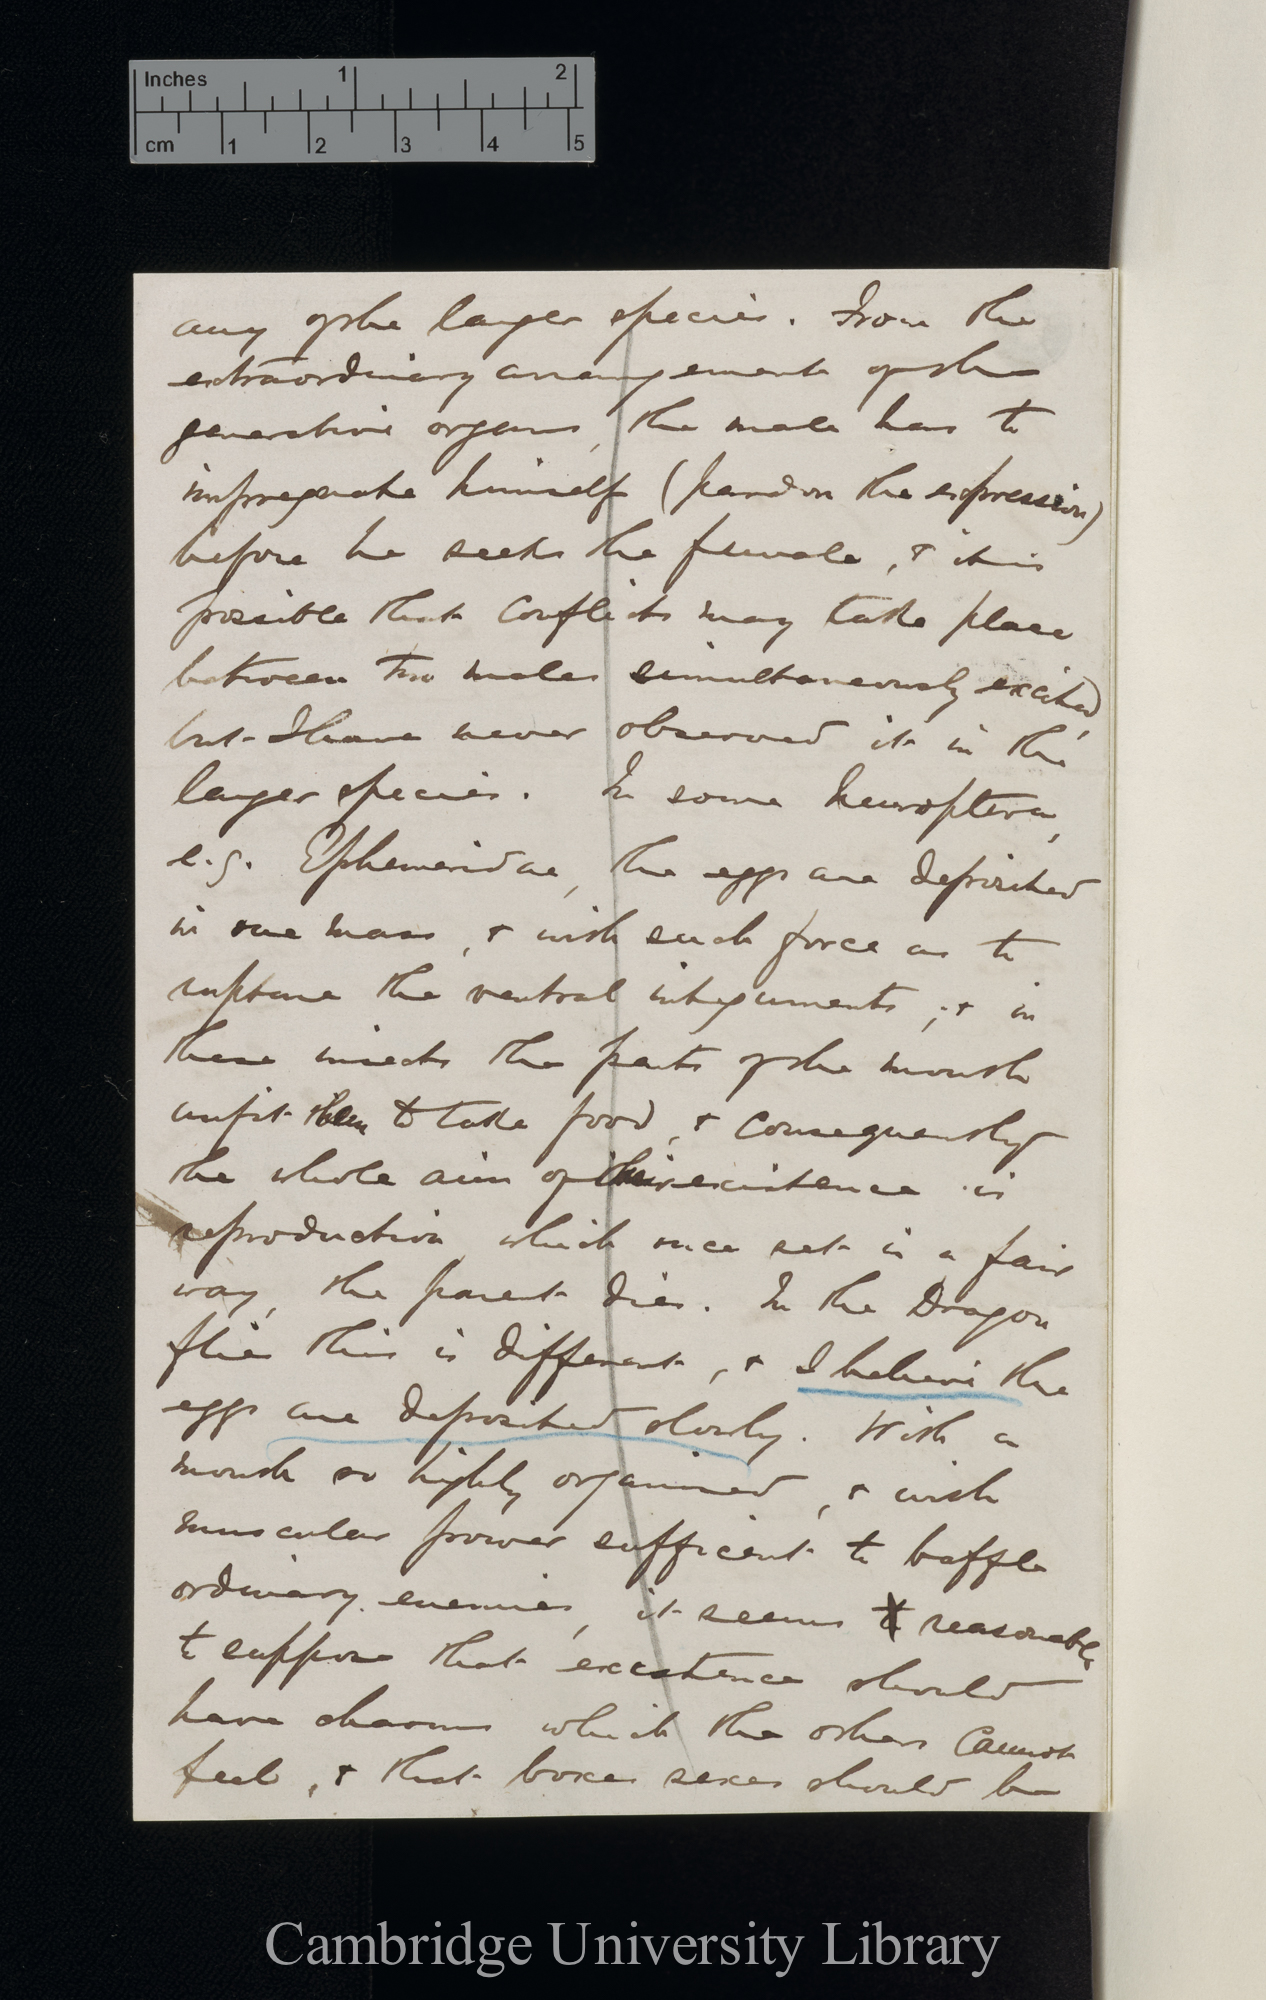 Inches 1 2
cm 1 2 3 4 5
any of the larger species. From the
extraordinary arrangement of the
generative organs, the male has to
impregnate himself (pardon the expression)
before he seeks the female, & it is
possible that conflicts may take place
between two males simultaneously excited,
but I have never observed it in the
larger species. In some Neuroptera,
e.g. Ephemeridae, the eggs are deposited
in one mass, & with such force as to
rupture the ventral integuments; & in
these insects the parts of the mouth
unfit them to take food, & consequently
the whole aim of their existence is
reproduction, which once set in a fair
way, the parent dies. In the Dragon
flies this is different, & I believe the
eggs are deposited slowly. With a
mouth so highly organised, & with
muscular power sufficient to baffle
ordinary enemies, it seems reasonable
to suppose that existence should
have charms which the others cannot
feel, & that sexes should be
Cambridge University Library